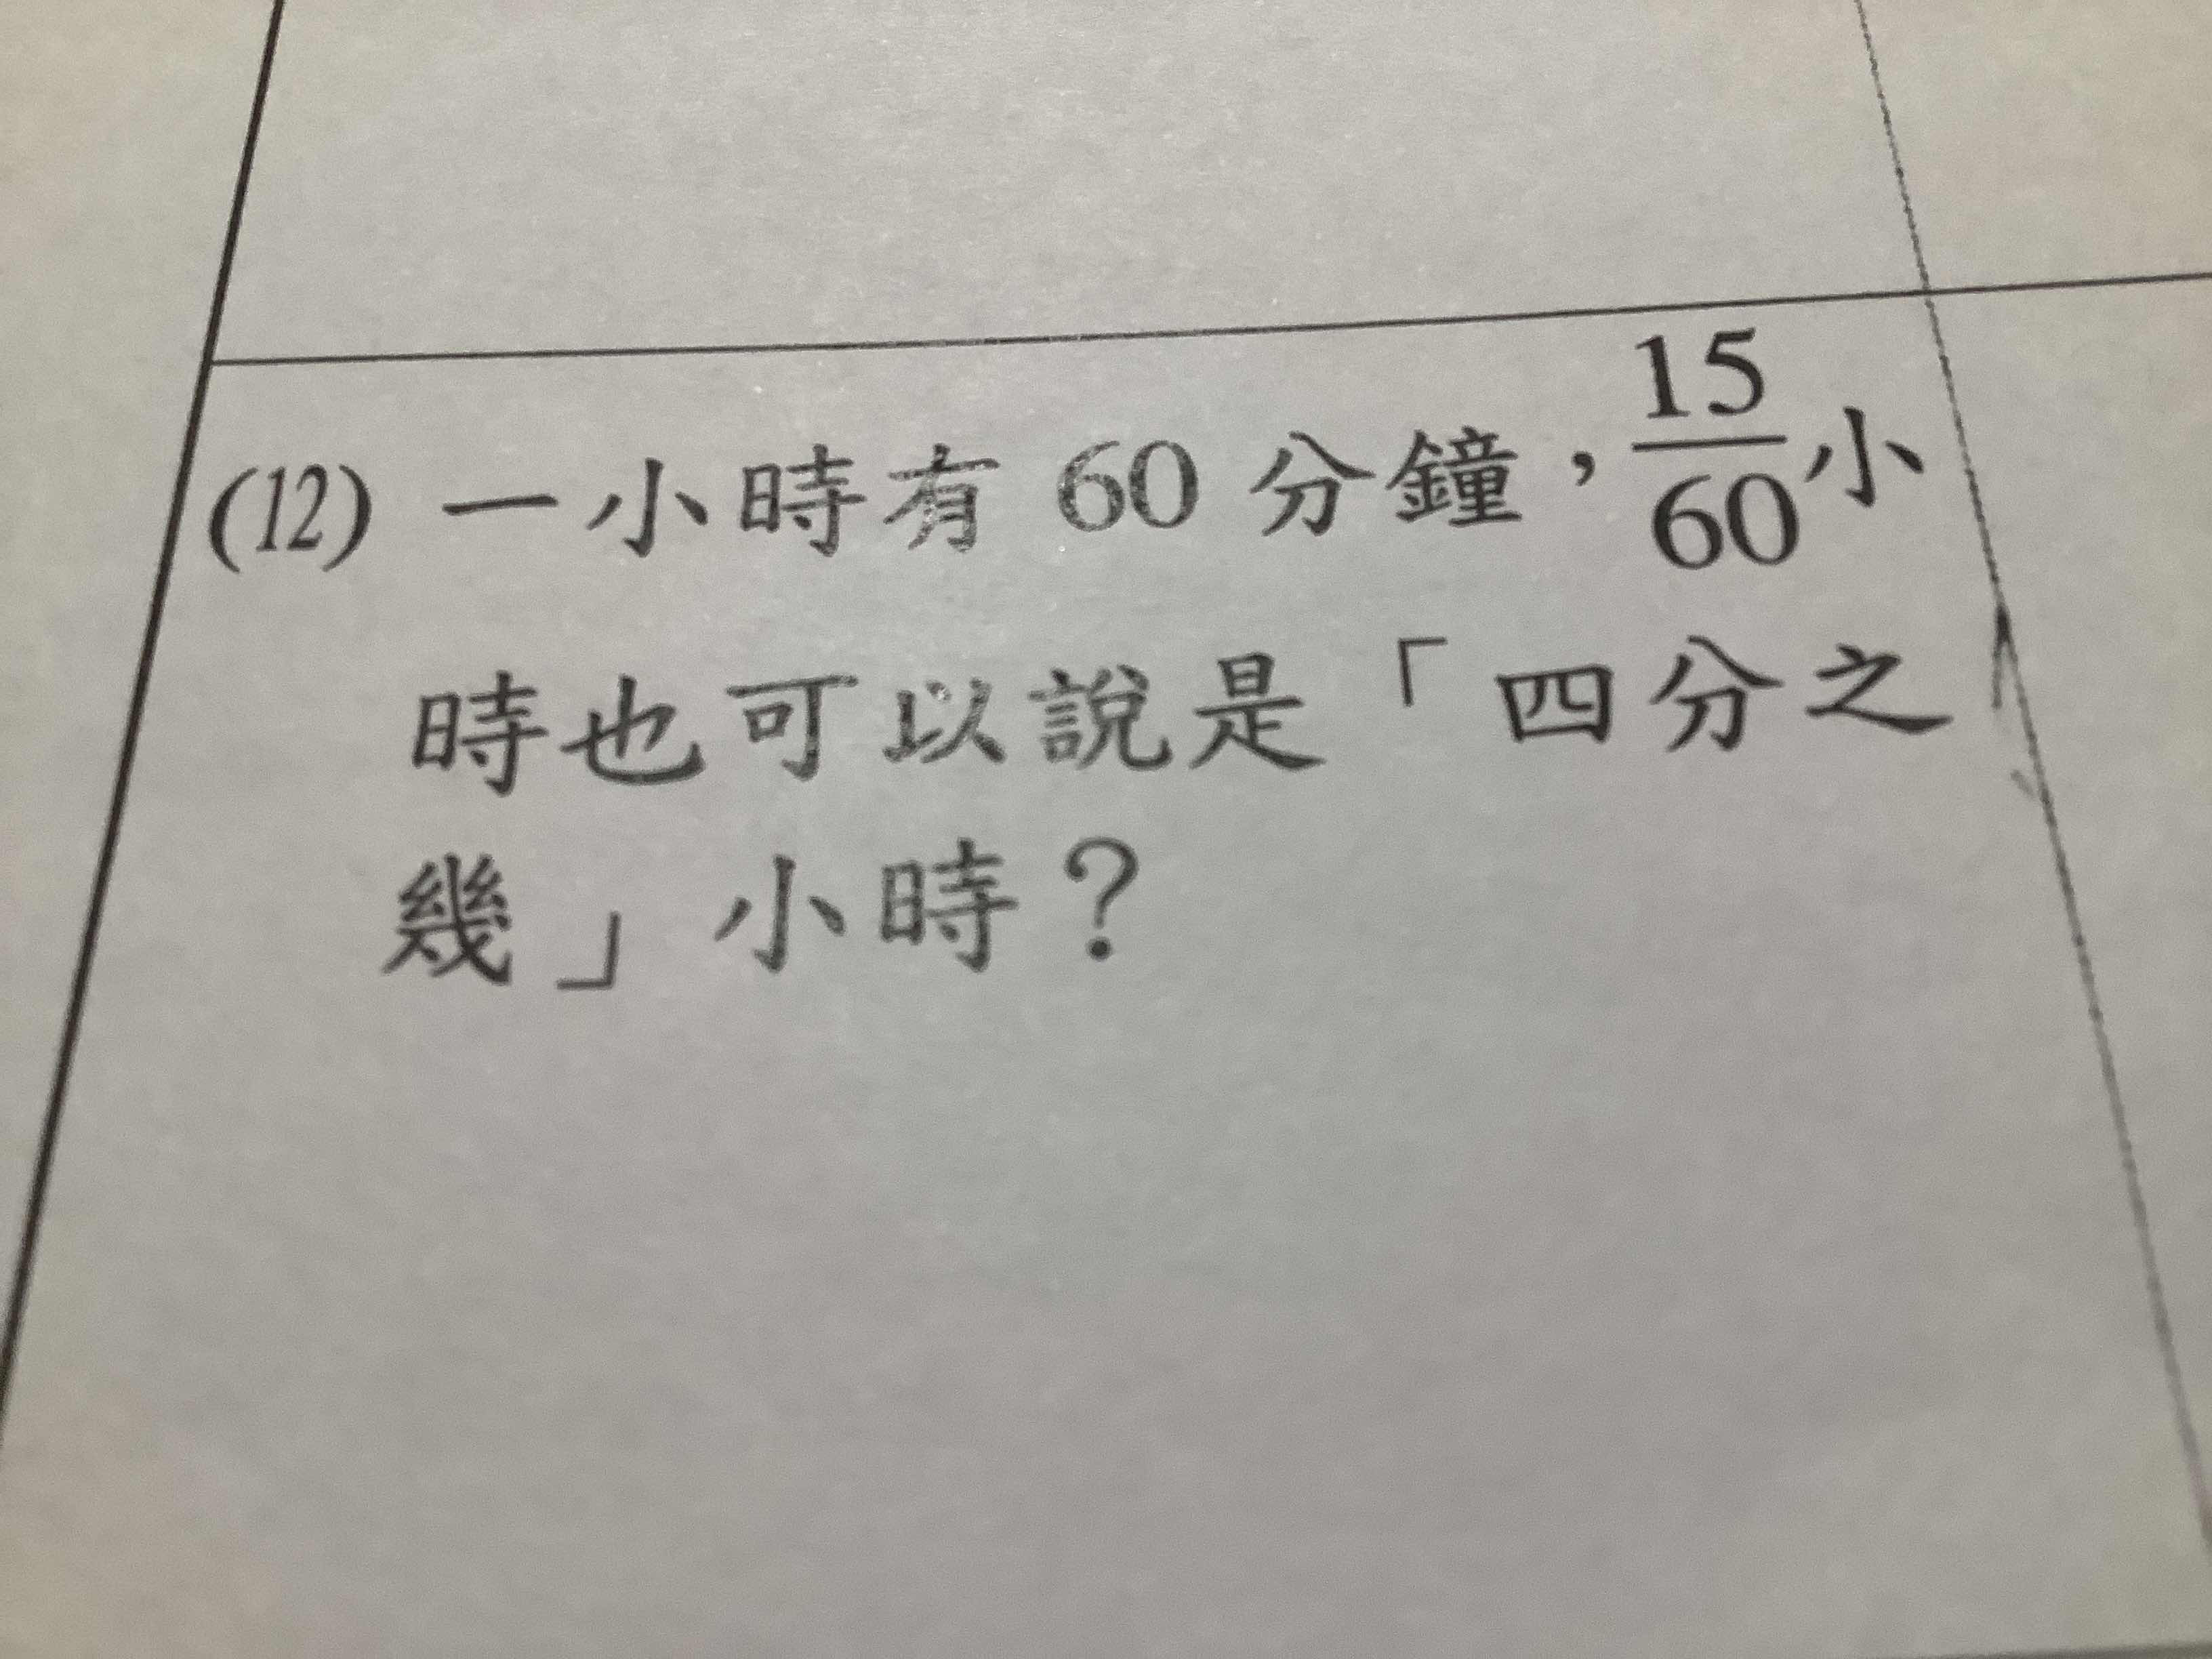 (12) 一小時有 60 分鐘，15/60小
時也可以說是「四分之
幾」小時？